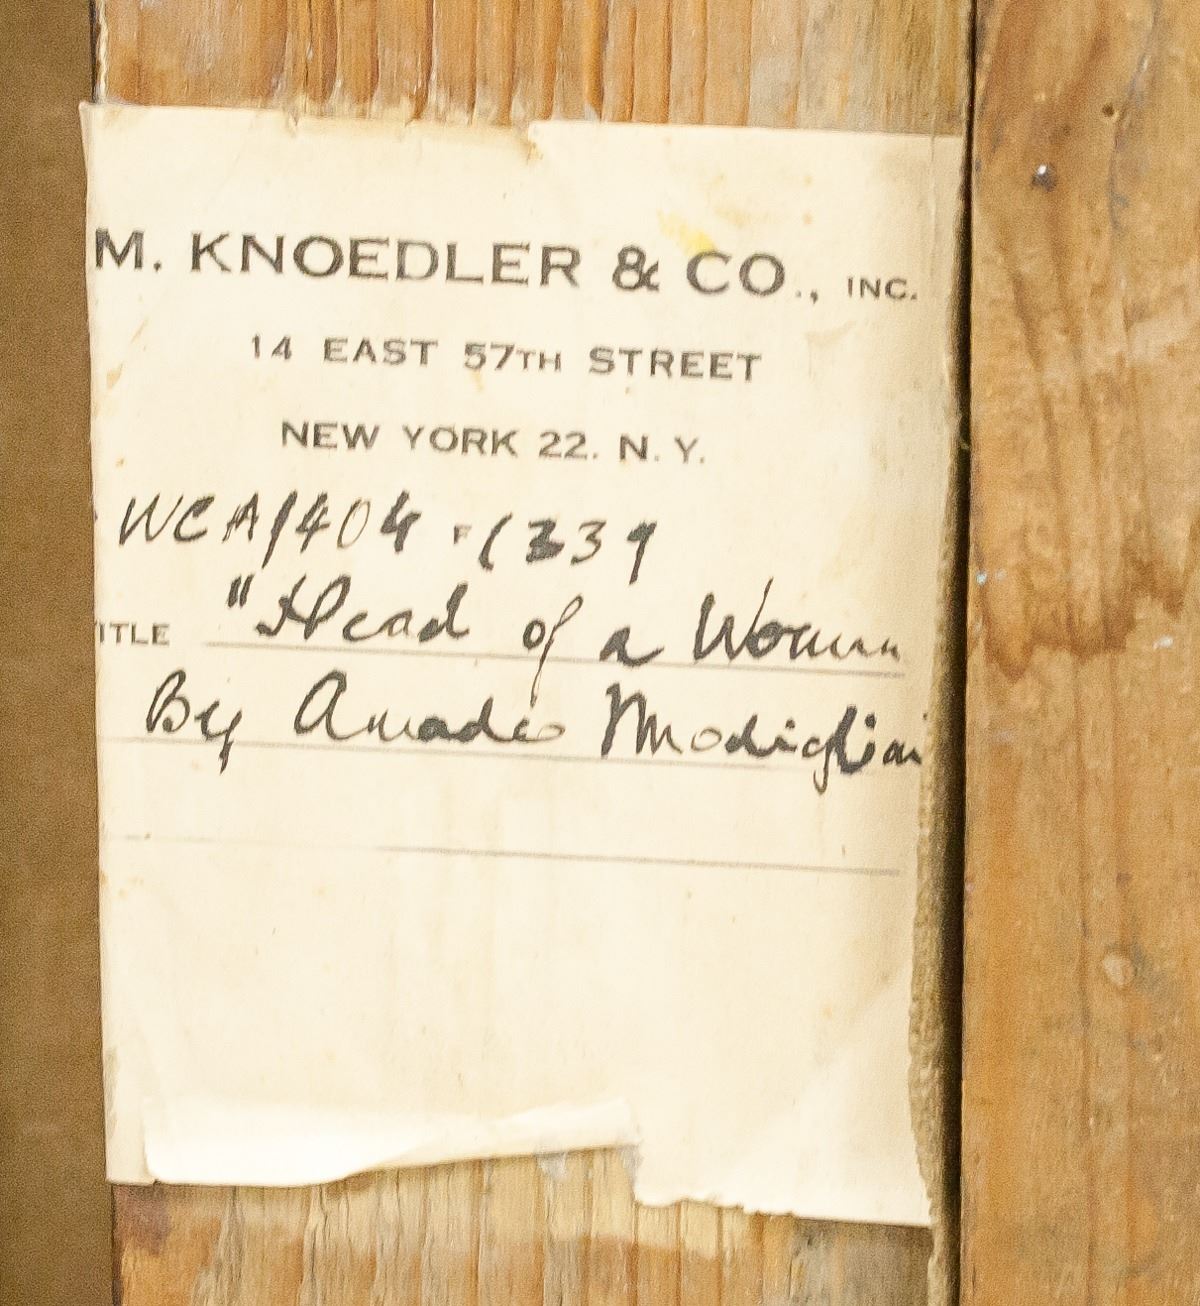 M. KNOEDLER & CO., INC.
14 EAST 57TH STREET
NEW YORK 22. N. Y.
WCA1404 1339
ITLE "Head of a Woman
By Amadeo Modiglian